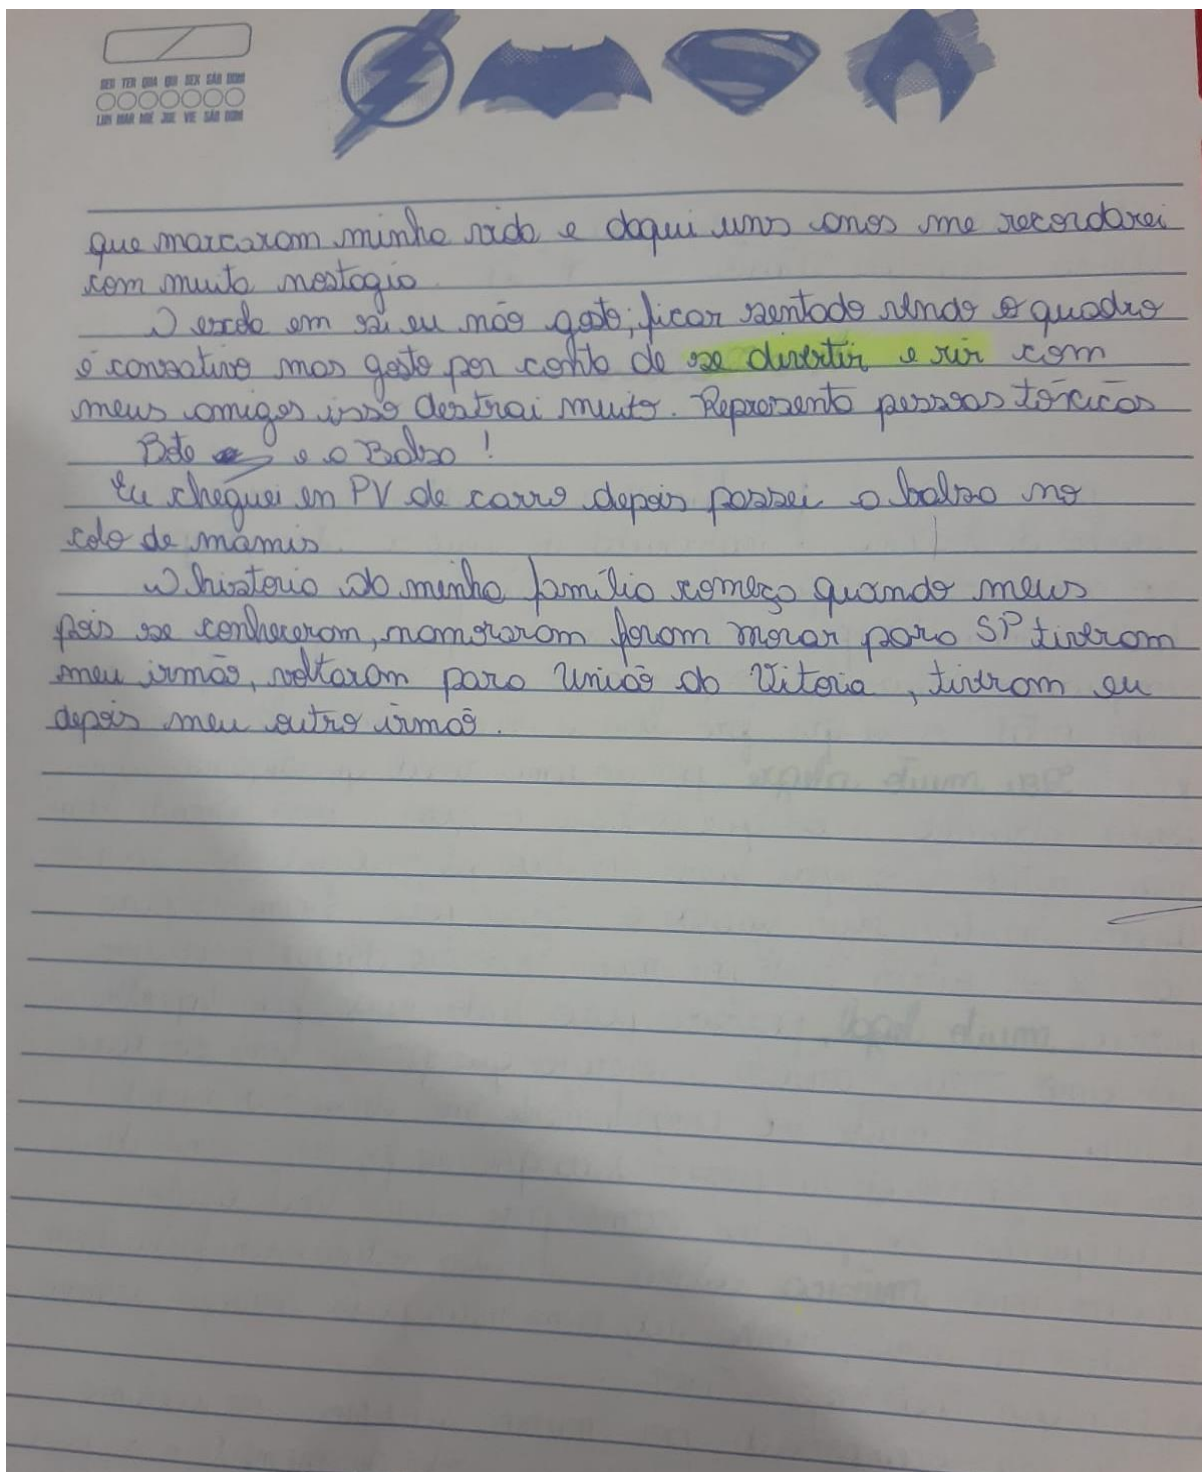 SEG TER QUA QUI SEX SÁB DOM
LUN MAR MIÉ JUE VIE SÁB DOM
que marcarom minha vida e daqui uns anos me recordarei
com muita nostagia
A escola em si eu não gosto, ficar sentado vendo o quadro
é cansativo mas gosto por conta de se divertir e rir com
meus amigos isso destrai muito. Representa pessoas tóxicas
Bote e o Balsa!
Eu cheguei en PV de carro depois passei a balsa no
colo de mamis.
A historia da minha família começa quando meus
pais se conhecerom, namorarom forom morar para SP tiverom
meu irmão, voltarom para União da Vitoria, tiverom eu
depois meu outro irmão.